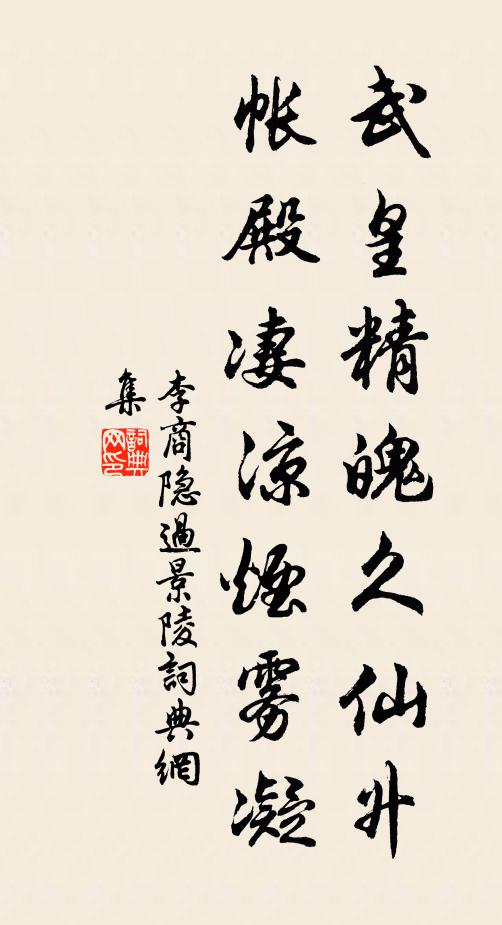 武皇精魄久仙升
帐殿凄涼煙雾凝
李商隐過景陵詞典網
集
詞典网印